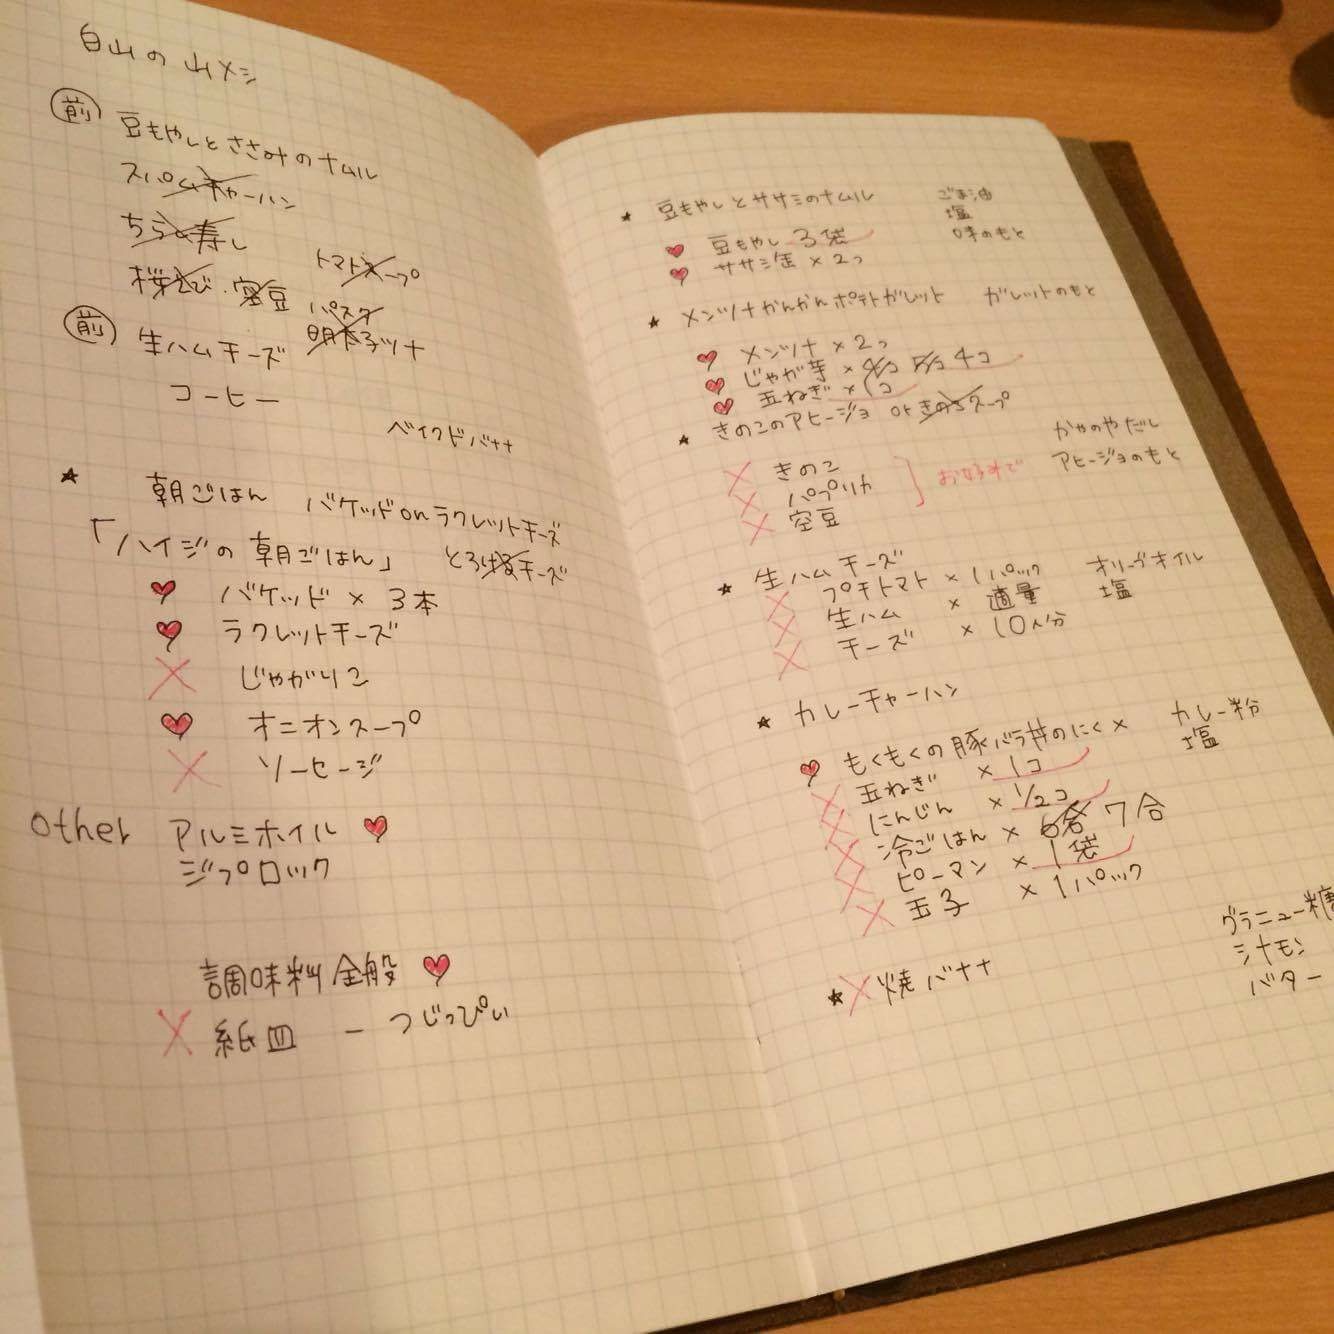 白山の山メシ
前 豆もやしとささみのナムル
スパムチャーハン
ちらし寿し
桜えび・空豆 トマトスープ
パスタ
前 生ハムチーズ 明太子ツナ
コーヒー
ベイクドバナナ
★ 朝ごはん バケッドonラクレットチーズ
「ハイジの朝ごはん」 とろけるチーズ
♥ バケッド×3本
♥ ラクレットチーズ
× じゃがりこ
♥ オニオンスープ
× ソーセージ
other アルミホイル ♥
ジップロック
調味料全般 ♥
× 紙皿 ー つじっぴぃ
★ 豆もやしとササミのナムル ごま油
塩
♥ 豆もやし 3袋 味のもと
♥ ササミ缶×2コ
★ メンツナかんかんポテトガレット ガレットのもと
♥ メンツナ×2コ
♥ じゃが芋× 4コ
♥ 玉ねぎ×1コ
★ きのこのアヒージョ orきのこスープ
かやのやだし
× きのこ お好みで アヒージョのもと
× パプリカ
× 空豆
★ 生ハムチーズ
× プチトマト×1パック オリーブオイル
× 生ハム × 適量 塩
× チーズ × 10人分
★ カレーチャーハン
♥ もくもくの豚バラ丼のにく× カレー粉
× 玉ねぎ ×1コ 塩
× にんじん ×1/2コ
× 冷ごはん× 7合
× ピーマン ×1袋
× 玉子 ×1パック
★× 焼バナナ グラニュー糖
シナモン
バター